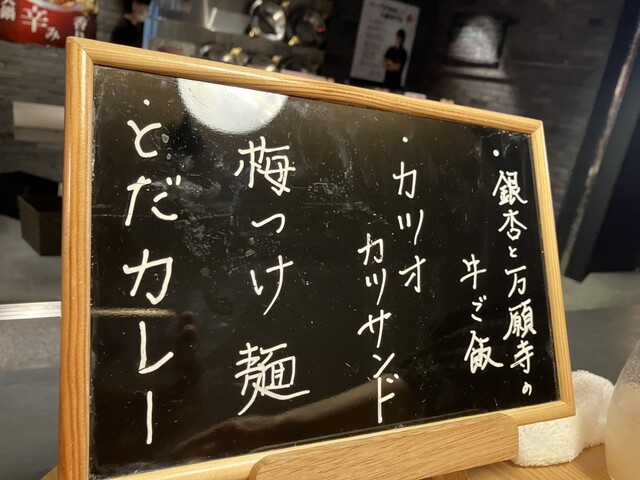 ・銀杏と万願寺の
牛ご飯
・カツオ
カツサンド
梅つけ麺
・とだカレー
辛み